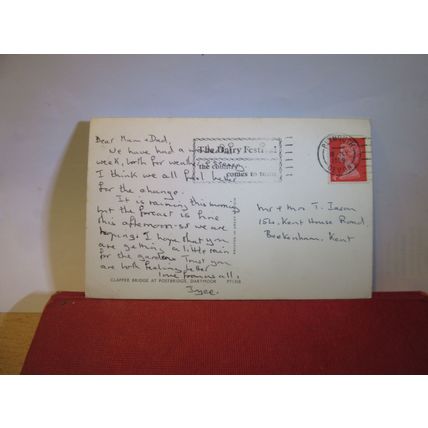 Dear Mum + Dad,
We have had a
week, both for weather &
I think we all feel better
for the change.
It is raining this morning
but the forecast is fine
this afternoon - so we are
hoping. I hope that you
are getting a little rain
for the garden. Trust you
are both feeling better
love from us all,
Joyce.
CLAPPER BRIDGE AT POSTBRIDGE, DARTMOOR PT1358
The Dairy Festival
the country
comes to town
Mr & Mrs T.
154, Kent House Road,
Beckenham, Kent